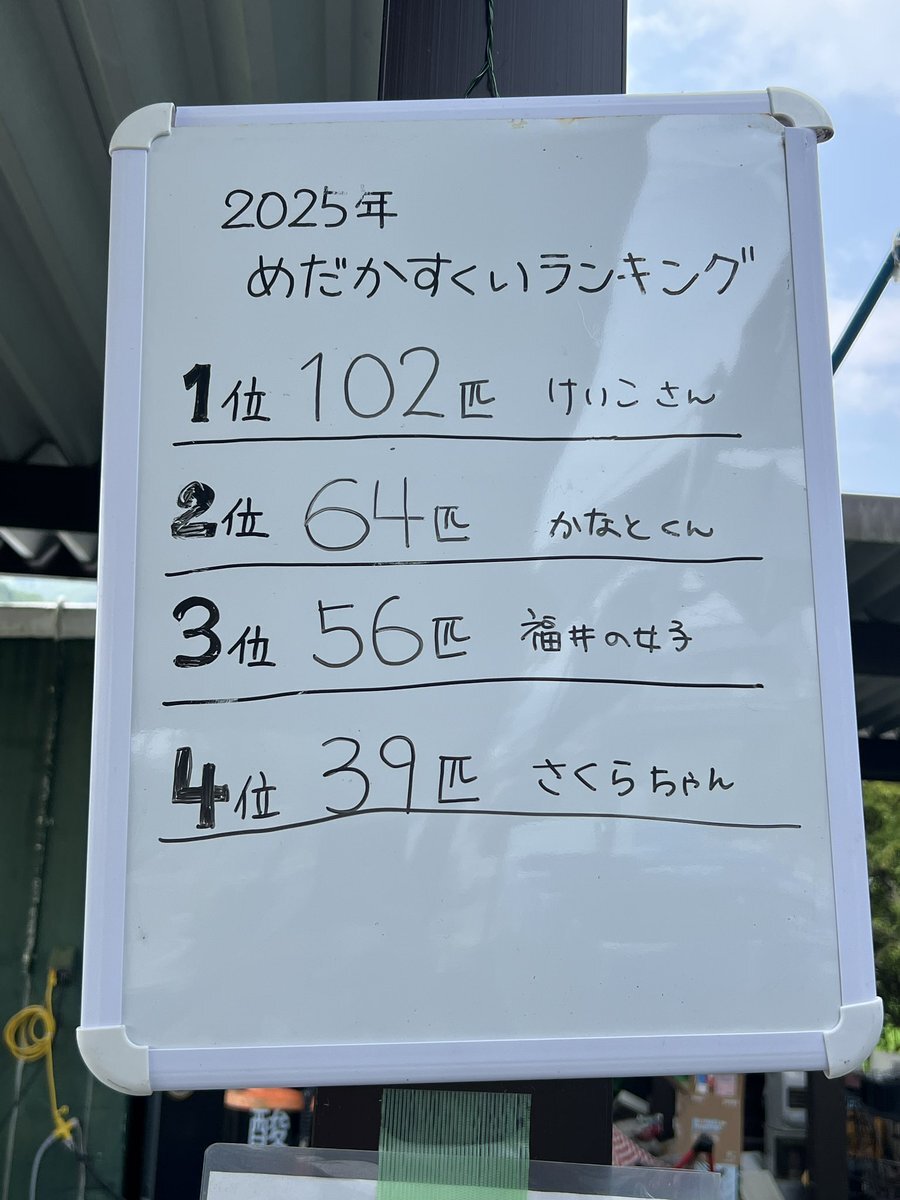 2025年
めだかすくいランキング
1位 102匹 けいこさん
2位 64匹 かなとくん
3位 56匹 福井の女子
4位 39匹 さくらちゃん
酸